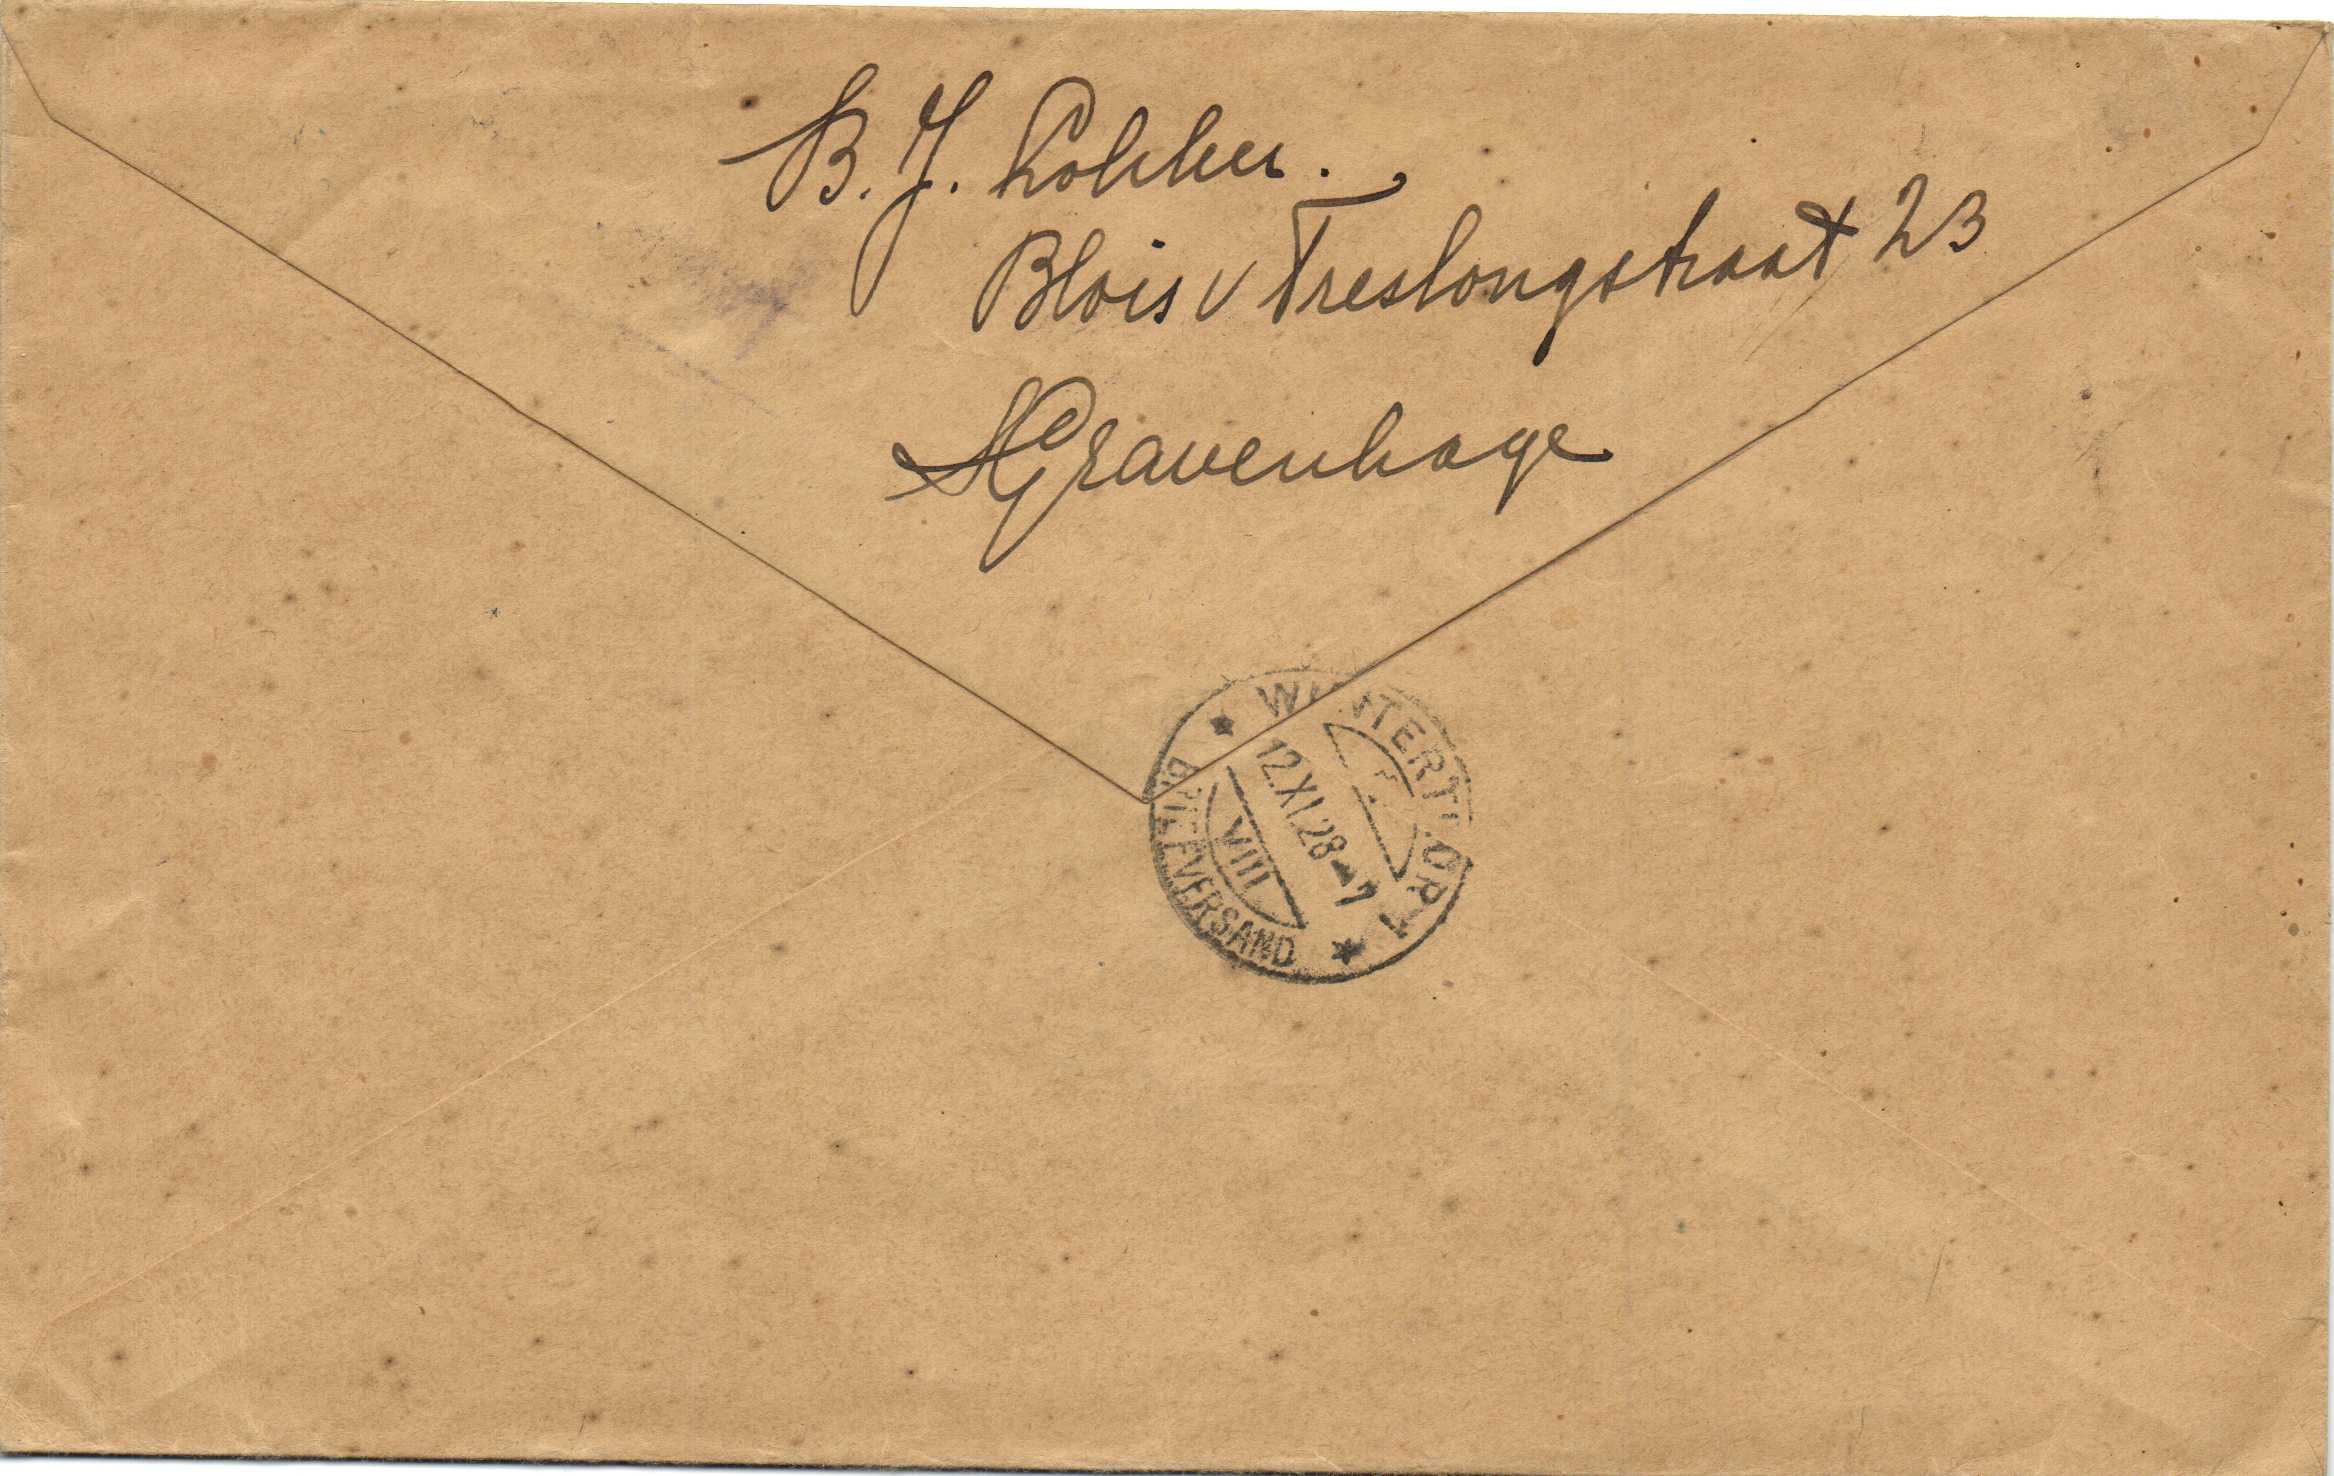 B. J.
Blois v Treslongstraat 23
s Gravenhage
WINTERTHUR 1
12.XI.28-7
VIII
BRIEFVERSAND